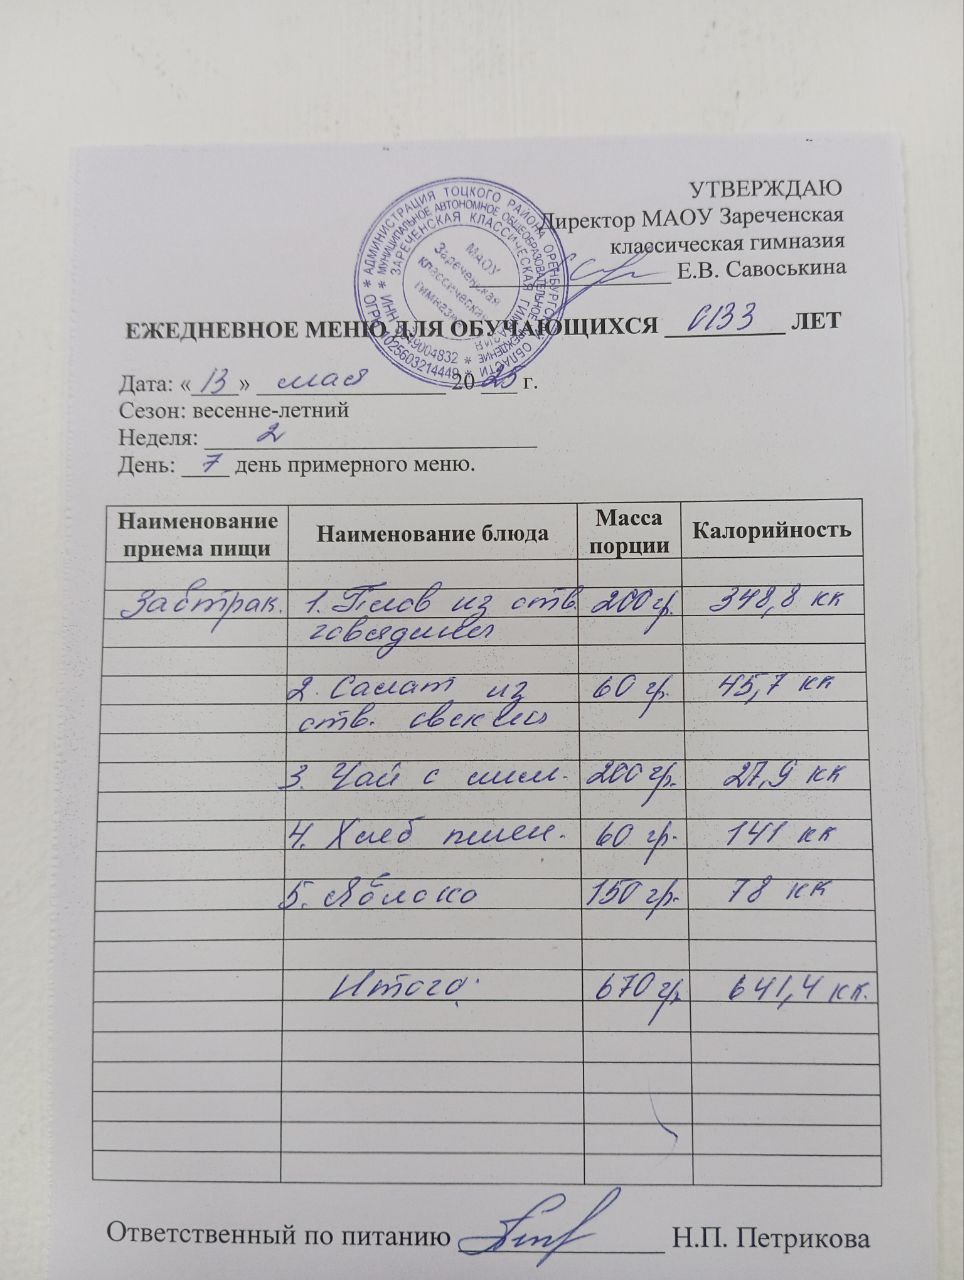 УТВЕРЖДАЮ
Директор МАОУ Зареченская
классическая гимназия
Е.В. Савоськина
АДМИНИСТРАЦИЯ ТОЦКОГО РАЙОНА ОРЕНБУРГСКОЙ ОБЛАСТИ
МУНИЦИПАЛЬНОЕ АВТОНОМНОЕ ОБЩЕОБРАЗОВАТЕЛЬНОЕ УЧРЕЖДЕНИЕ
ЗАРЕЧЕНСКАЯ КЛАССИЧЕСКАЯ ГИМНАЗИЯ
МАОУ
Зареченская
классическая
гимназия
ЕЖЕДНЕВНОЕ МЕНЮ ДЛЯ ОБУЧАЮЩИХСЯ ОВЗ ЛЕТ
Дата: «13» мая 2025 г.
Сезон: весенне-летний
Неделя: 2
День: 7 день примерного меню.
Наименование приема пищи Наименование блюда Масса порции Калорийность
Завтрак. 1. Плов из отв. 200 гр. 348,8 кк
говядины
2. Салат из 60 гр. 45,7 кк
отв. свеклы
3. Чай с лим. 200 гр. 27,9 кк
4. Хлеб пшен. 60 гр. 141 кк
5. Яблоко 150 гр. 78 кк
Итого: 670 гр. 641,4 кк.
Ответственный по питанию Н.П. Петрикова